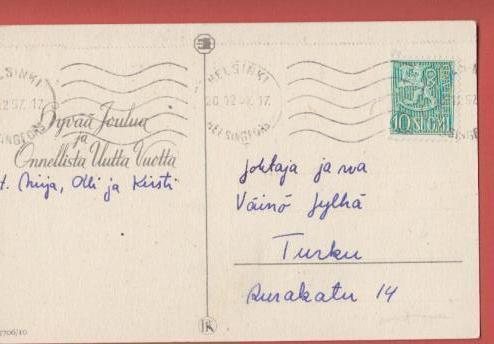 HELSINKI
20.12.57.17
HELSINGFORS
Hyvää Joulua
ja
Onnellista Uutta Vuotta
t. Mirja, Olli ja Kirsti
10 SUOMI
Johtaja ja rva
Väinö Jylhä
Turku
Aurakatu 14
7706/10